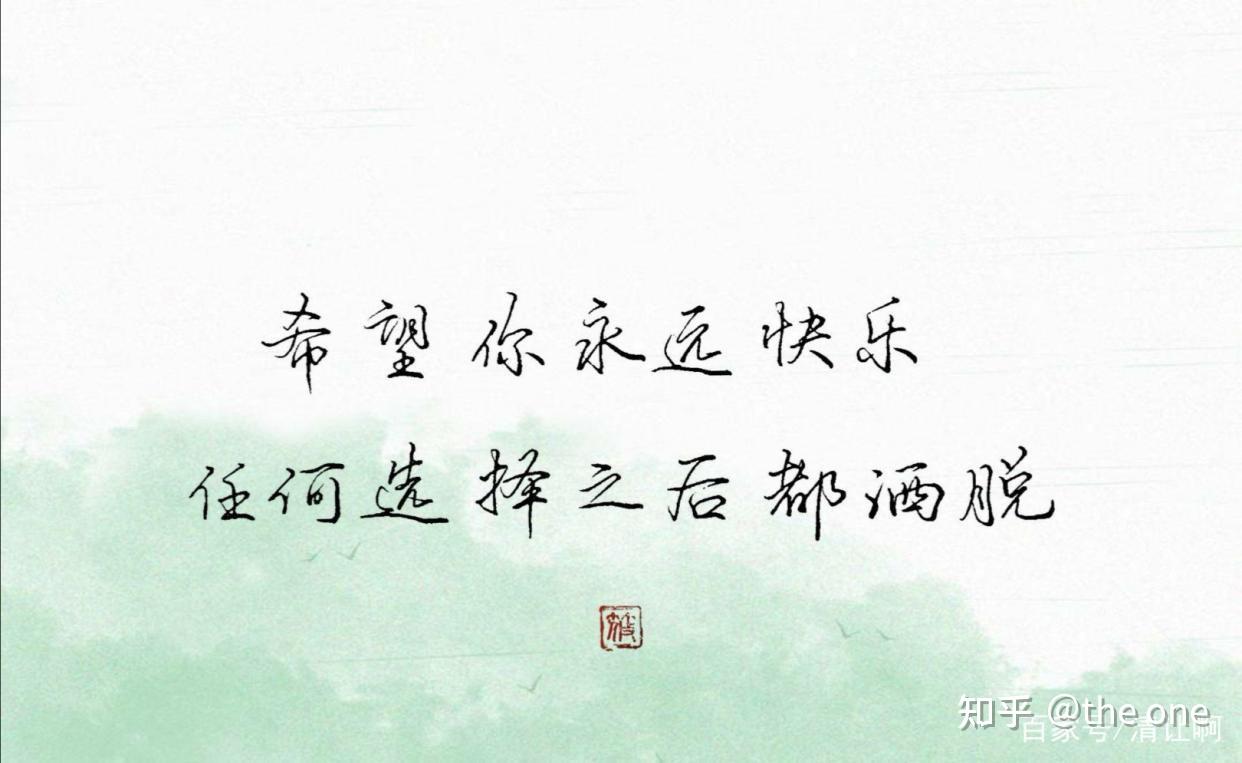 希望你永远快乐
任何选择之后都洒脱
知乎 @the one
百家号/清让啊